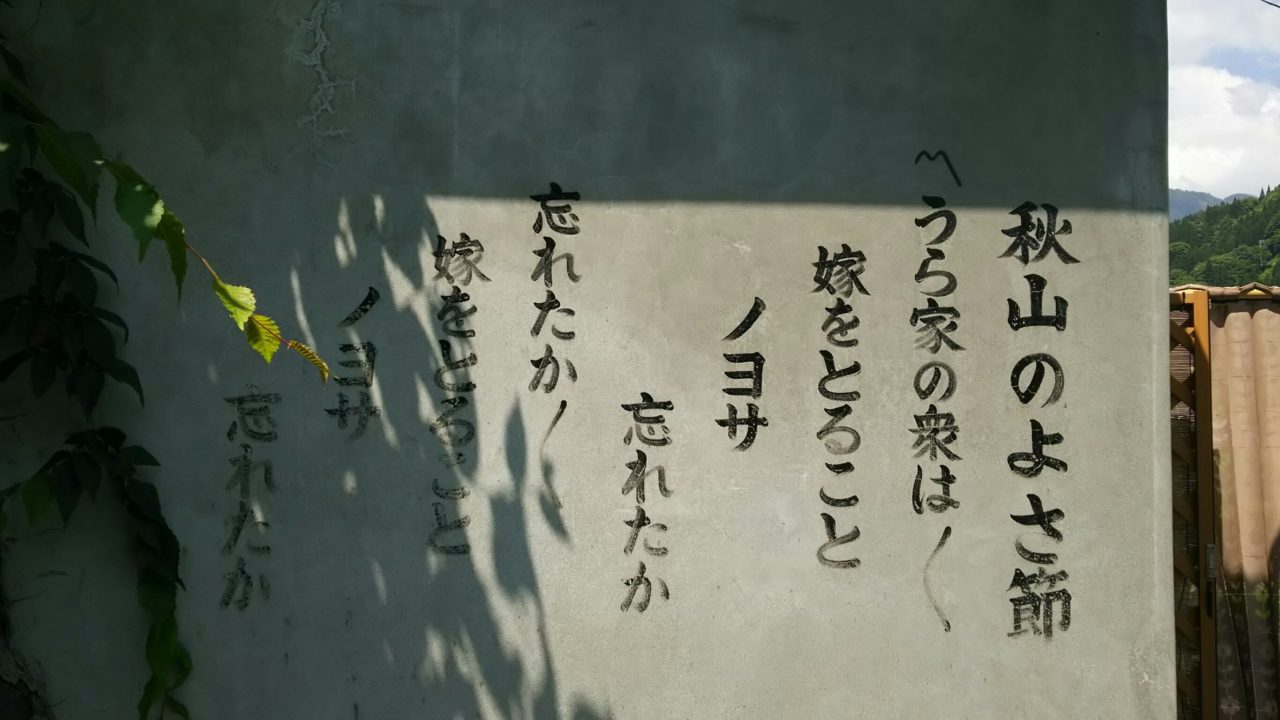 秋山のよさ節
〽うら家の衆は〱
嫁をとること
ノヨサ
忘れたか
忘れたか〱
嫁をとること
ノヨサ
忘れたか